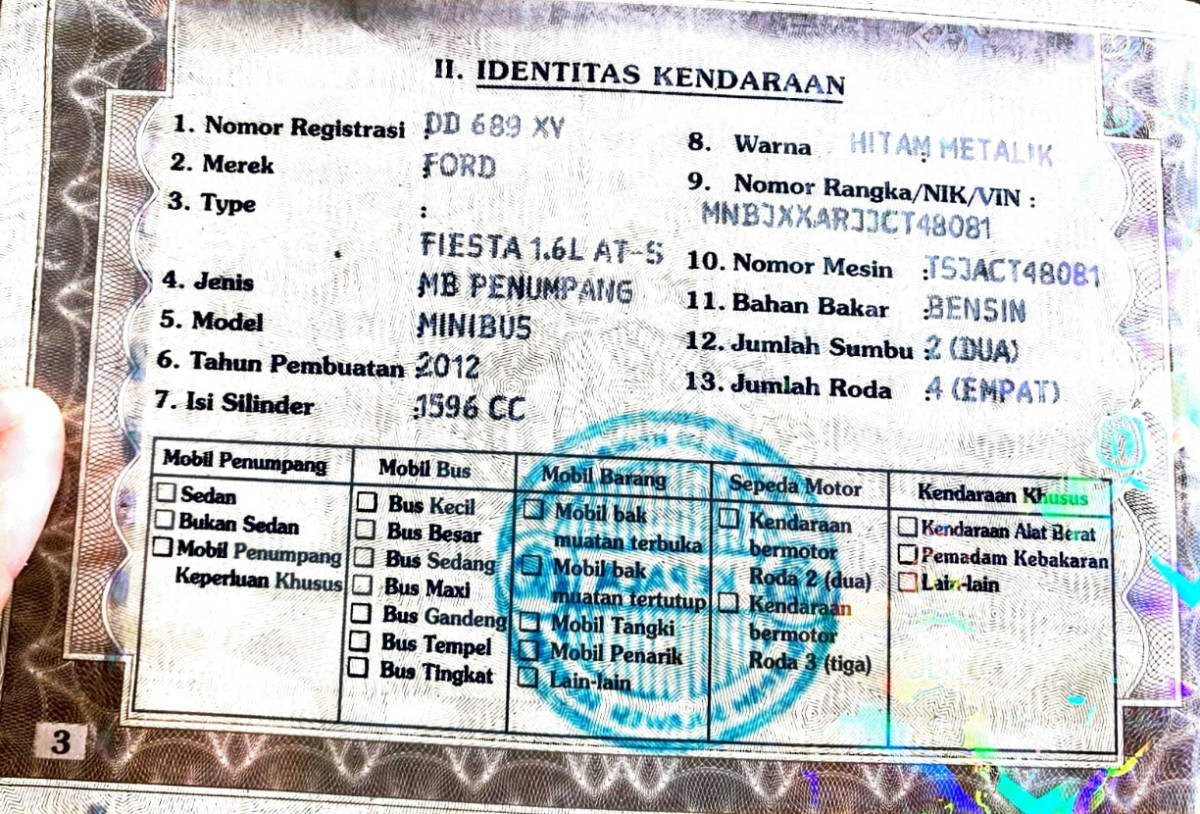 II. IDENTITAS KENDARAAN
1. Nomor Registrasi : DD 689 XV
2. Merek : FORD
3. Type :
FIESTA 1.6L AT-S
4. Jenis : MB PENUMPANG
5. Model : MINIBUS
6. Tahun Pembuatan : 2012
7. Isi Silinder : 1596 CC
8. Warna : HITAM METALIK
9. Nomor Rangka/NIK/VIN :
MNBJXXARJJCT48081
10. Nomor Mesin : TSJACT48081
11. Bahan Bakar : BENSIN
12. Jumlah Sumbu : 2 (DUA)
13. Jumlah Roda : 4 (EMPAT)
Mobil Penumpang
Sedan
Bukan Sedan
Mobil Penumpang
Keperluan Khusus
Mobil Bus
Bus Kecil
Bus Besar
Bus Sedang
Bus Maxi
Bus Gandeng
Bus Tempel
Bus Tingkat
Mobil Barang
Mobil bak
muatan terbuka
Mobil bak
muatan tertutup
Mobil Tangki
Mobil Penarik
Lain-lain
Sepeda Motor
Kendaraan
bermotor
Roda 2 (dua)
Kendaraan
bermotor
Roda 3 (tiga)
Kendaraan Khusus
Kendaraan Alat Berat
Pemadam Kebakaran
Lain-lain
3